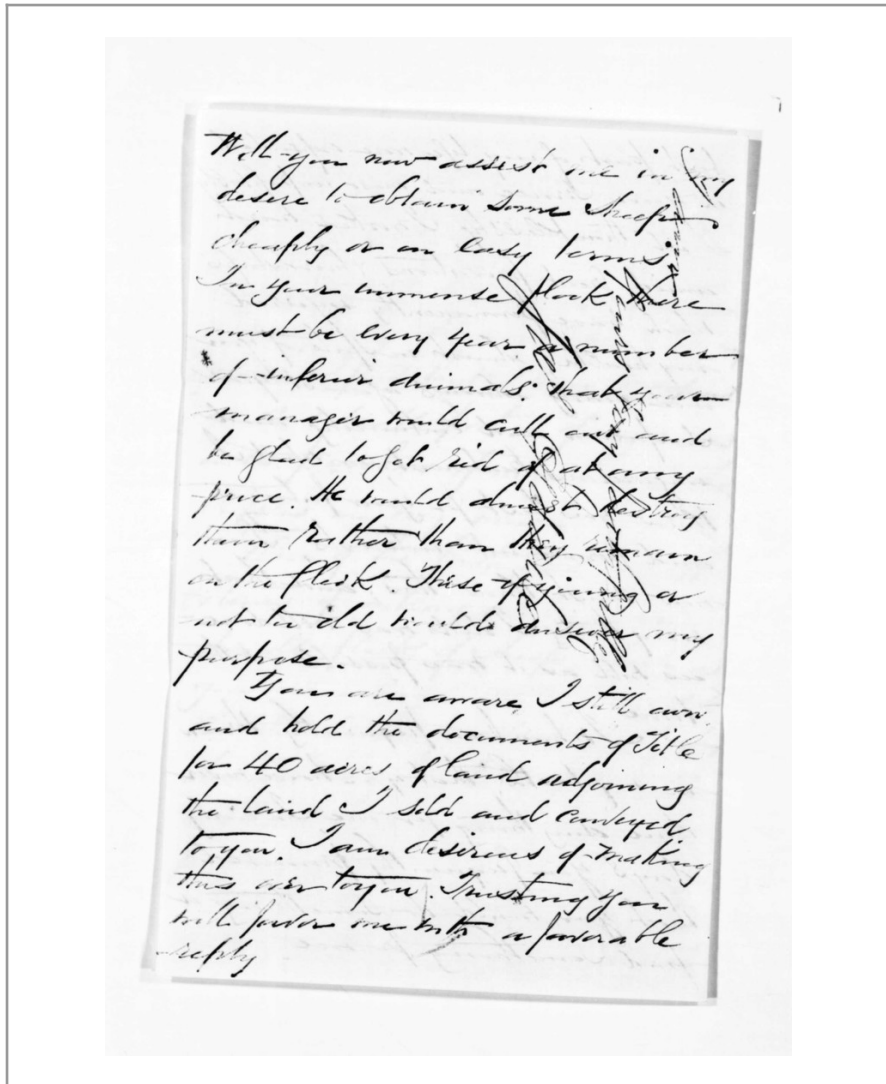 Will you now assist me in my
desire to obtain some sheep
cheaply or on easy terms.
In your immense flock there
must be every year a number
of inferior animals, that your
manager would cull out and
be glad to get rid of at any
price. He would almost destroy
them rather than they remain
on the flock. These if young or
not too old would answer my
purpose.
You are aware I still own
and hold the documents of Title
for 40 acres of land adjoining
the land I sold and conveyed
to you. I am desirous of making
this over to you. Trusting you
will favor me with a favorable
reply
I remain
Yours